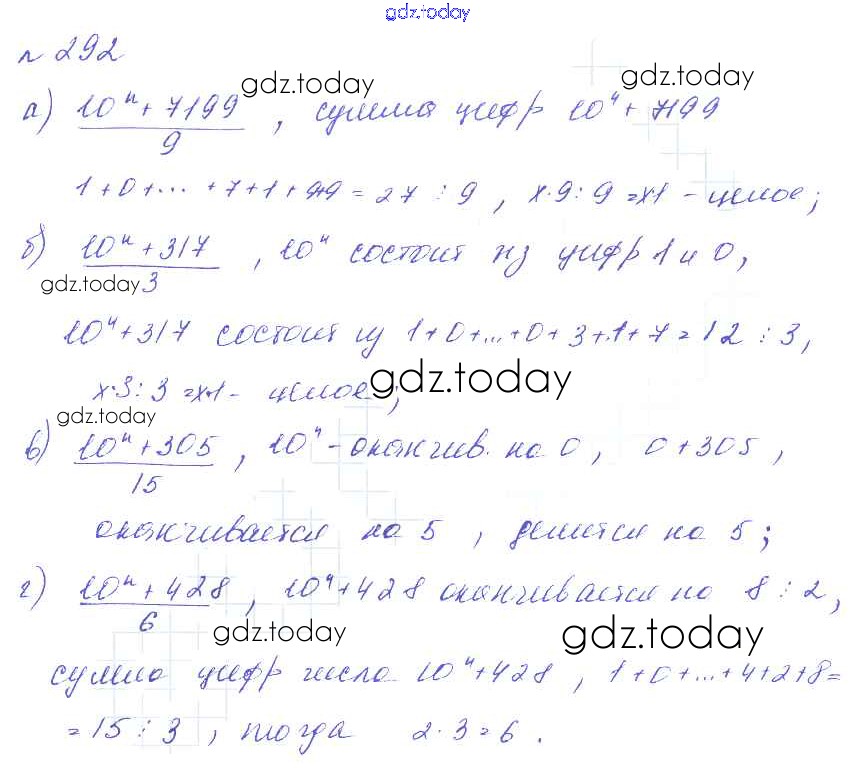 gdz.today
n 292
gdz.today gdz.today
а) 10ⁿ + 7199 / 9 , сумма цифр 10ⁿ + 7199
1 + 0 + ... + 7 + 1 + 9+9 = 27 ⋮ 9 , x·9 : 9 = x·1 - целое ;
б) 10ⁿ + 317 / 3 , 10ⁿ состоит из цифр 1 и 0,
gdz.today
10ⁿ + 317 состоит из 1 + 0 + ... + 0 + 3 + 1 + 7 = 12 ⋮ 3,
x·3 : 3 = x·1 - целое ;
gdz.today
gdz.today
в) 10ⁿ + 305 / 15 , 10ⁿ - оканчив. на 0 , 0 + 305 ,
оканчивается на 5 , делится на 5 ;
г) 10ⁿ + 428 / 6 , 10ⁿ + 428 оканчивается на 8 ⋮ 2,
gdz.today gdz.today
сумма цифр числа 10ⁿ + 428 , 1 + 0 + ... + 4 + 2 + 8 =
= 15 ⋮ 3 , тогда 2 · 3 = 6 .